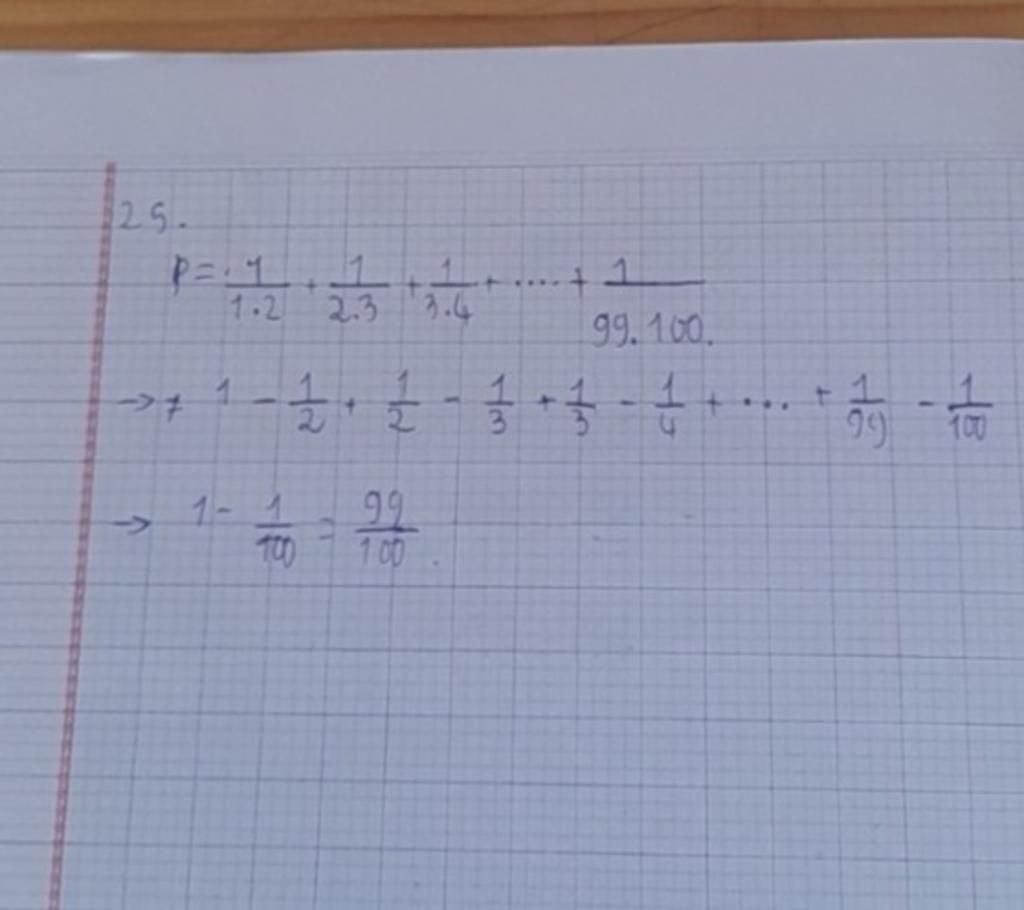 25.
P = 1/1.2 + 1/2.3 + 1/3.4 + .... + 1/99.100.
→ 1 - 1/2 + 1/2 - 1/3 + 1/3 - 1/4 + ... + 1/99 - 1/100
→ 1 - 1/100 = 99/100.